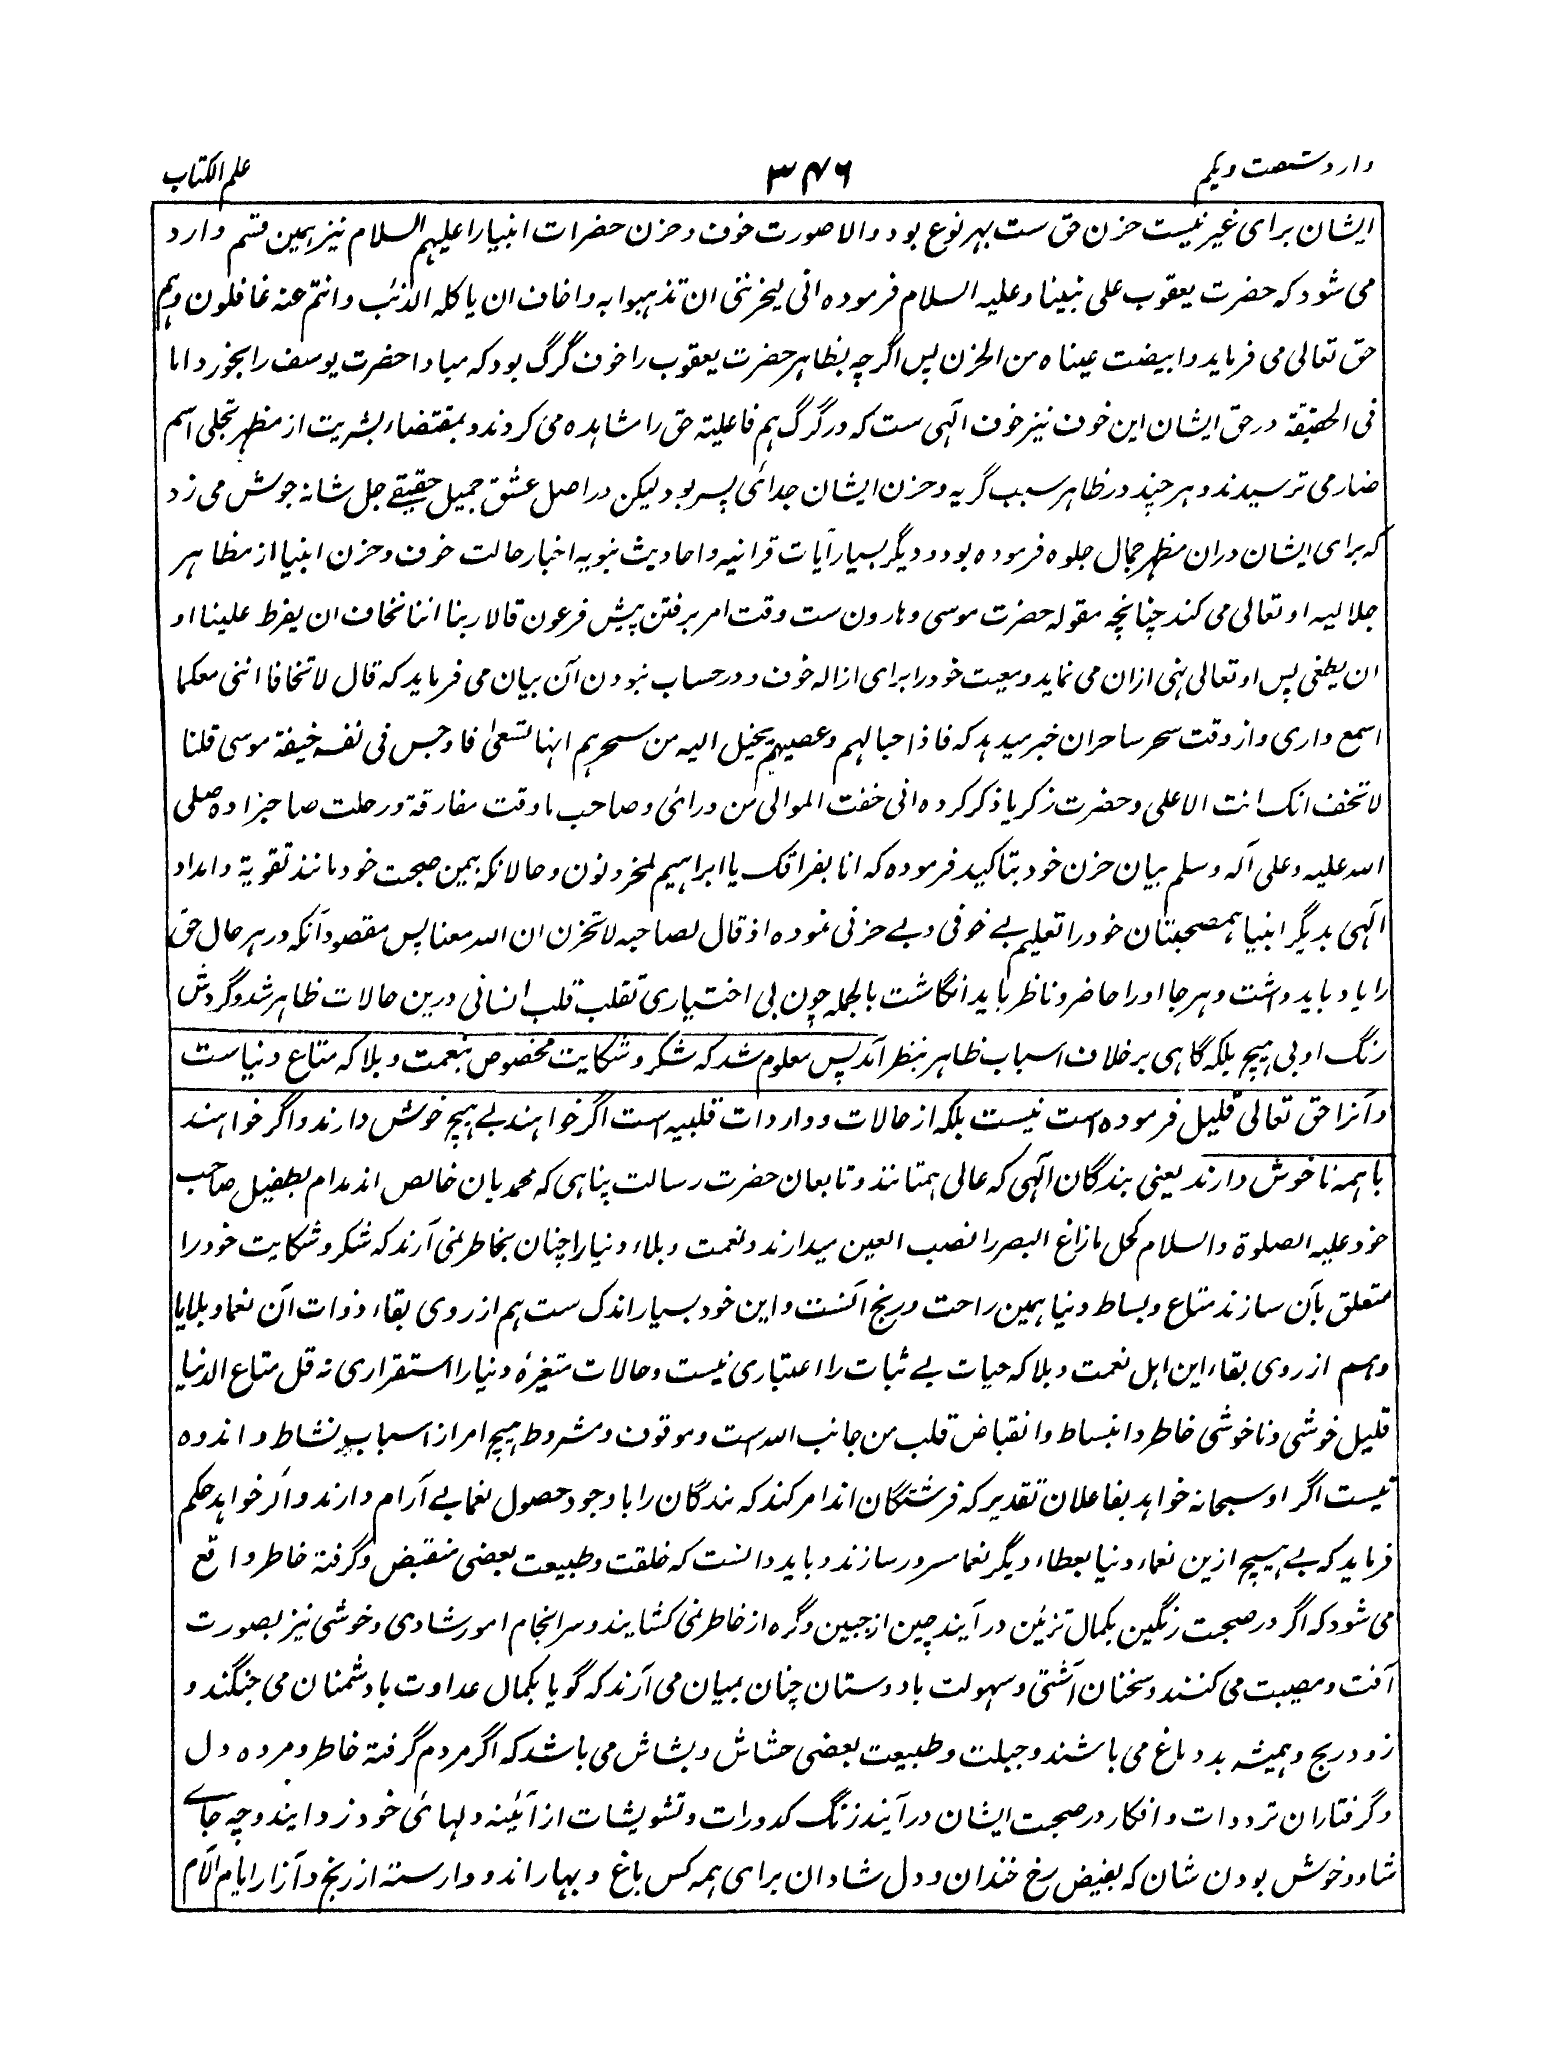 وارد شصت ويكم
۳۴۶
علم الكتاب
ایشان برای غیر نیست حزن حق ست بهر نوع بود و الا صورت خوف و حزن حضرات انبیا را علیهم السلام نیز بهمین قسم وارد
می شود که حضرت یعقوب علی نبینا و علیه السلام فرموده انی لیحزننی ان تذهبوا به و اخاف ان یاکله الذئب و انتم عنه غافلون و هم
حق تعالی می فرماید و ابیضت عیناه من الحزن پس اگرچه بظاهر حضرت یعقوب را خوف گرگ بود که مبادا حضرت یوسف را بخورد اما
فی الحقیقة در حق ایشان این خوف نیز خوف الهی ست که در گرگ هم فاعلیة حق را مشاهده می کردند و بمقتضاء بشریت از مظهر تجلی اسم
ضار می ترسیدند و هر چند در ظاهر سبب گریه و حزن ایشان جدائی پسر بود لیکن در اصل عشق جمیل حقیقے جل شانه جوش می زد
که برای ایشان دران مظهر جمال جلوه فرموده بود و دیگر بسیار آیات قرانیه و احادیث نبویه اخبار حالت خوف و حزن انبیا از مظاهر
جلالیه او تعالی می کند چنانچه مقوله حضرت موسی و هارون ست وقت امر برفتن پیش فرعون قالا ربنا اننا نخاف ان یفرط علینا او
ان یطغی پس او تعالی نهی ازان می نماید و معیت خود را برای ازاله خوف و در حساب نبودن آن بیان می فرماید که قال لا تخافا اننی معکما
اسمع و اری و از وقت سحر ساحران خبر میدهد که فاذا حبالهم و عصیهم یخیل الیه من سحرهم انها تسعیٰ فاوجس فی نفسه خیفة موسی قلنا
لا تخف انک انت الاعلی و حضرت زکریا ذکر کرده انی خفت الموالی من ورائی و صاحب ما وقت مفارقة و رحلت صاحبزاده صلی
الله علیه و علی آله و سلم بیان حزن خود بتاکید فرموده که انا بفراقک یا ابراهیم لمحزونون و حالانکه بیمن صحبت خود مانند تقویة و امداد
الٓهی بدیگر انبیا همصحبتان خود را تعلیم بے خوفی و بے حزنی نموده اذ قال لصاحبه لا تحزن ان الله معنا پس مقصود آنکه در هر حال حق
را یاد باید داشت و هر جا او را حاضر و ناظر باید انگاشت بالجمله چون بی اختیاری تقلب قلب انسانی درین حالات ظاهر شد و گردش
رنگ او بی هیچ بلکه گاهی بر خلاف اسباب ظاهر بنظر آمد پس معلوم شد که شکر و شکایت مخصوص بنعمت و بلا که متاع دنیاست
و آنرا حق تعالی قلیل فرموده است نیست بلکه از حالات و واردات قلبیه است اگر خواهند بے هیچ خوش دارند و اگر خواهند
با همه ناخوش دارند یعنی بندگان الٓهی که عالی همتانند و تابعان حضرت رسالت پناهی که محمدیان خالص اند مدام بطفیل صاحب
خود علیه الصلوة و السلام کحل ما زاغ البصر را نصب العین میدارند و نعمت و بلاء دنیا را چنان بخاطر نمی آرند که شکر و شکایت خود را
متعلق بآن سازند متاع و بساط دنیا همین راحت و رنج آنست و این خود بسیار اندک ست هم از روی بقاء ذوات آن نعما و بلایا
و هم از روی بقاء این اهل نعمت و بلا که حیات بے ثبات را اعتباری نیست و حالات متغیرهٔ دنیا را استقراری نه قل متاع الدنیا
قلیل خوشی و ناخوشی خاطر و انبساط و انقباض قلب من جانب الله است و موقوف و مشروط بهیچ امر از اسباب نشاط و اندوه
نیست اگر او سبحانه خواهد بفاعلان تقدیر که فرشتگان اند امر کند که بندگان را با وجود حصول نعما بے آرام دارند و اگر خواهد حکم
فرماید که بے هیچ ازین نعماء دنیا بعطاء دیگر نعما مسرور سازند و باید دانست که خلقت و طبیعت بعضی منقبض و گرفتة خاطر واقع
می شود که اگر در صحبت رنگین بکمال تزئین در آیند چین از جبین و گره از خاطر نمی کشایند و سرانجام امور شادی و خوشی نیز بصورت
آفت و مصیبت می کنند و سخنان آشتی و سهولت با دوستان چنان بمیان می آرند که گویا بکمال عداوت با دشمنان می جنگند و
زود رنج و همیشه بد دماغ می باشند و جبلت و طبیعت بعضی حشاش و بشاش می باشد که اگر مردم گرفتة خاطر و مرده دل
و گرفتاران ترددات و افکار در صحبت ایشان در آیند زنگ کدورات و تشویشات از آئینه دلهائی خود زدایند و چه جاے
شاد و خوش بودن شان که بفیض رخ خندان و دل شادان برای همه کس باغ و بهار اند و وارستة از رنج و آزار ایام آلام